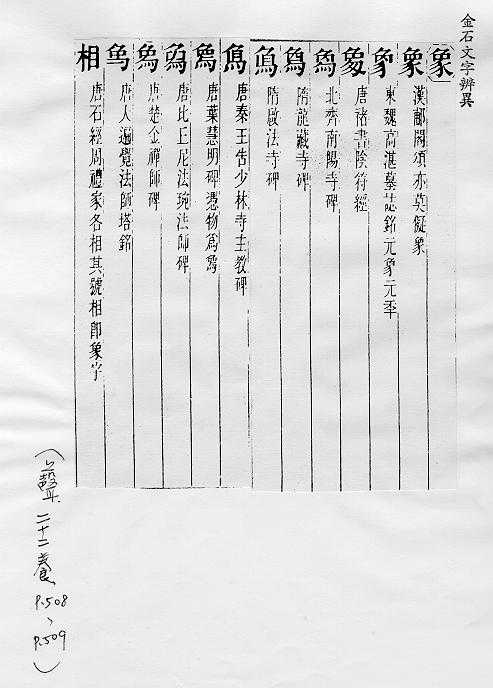 金石文字辨異
象
漢郙閣頌亦莫儗象
東魏高湛墓誌銘元象元年
唐褚書陰符經
北齊南陽寺碑
隋龍藏寺碑
隋啟法寺碑
唐秦王告少林寺主教碑
唐葉慧明碑憑物為
唐比丘尼法琬法師碑
唐楚金禪師碑
唐人遍覺法師塔銘
相 唐石經周禮家各相其號相卽象字
上聲 二十二養 P.508、P.509